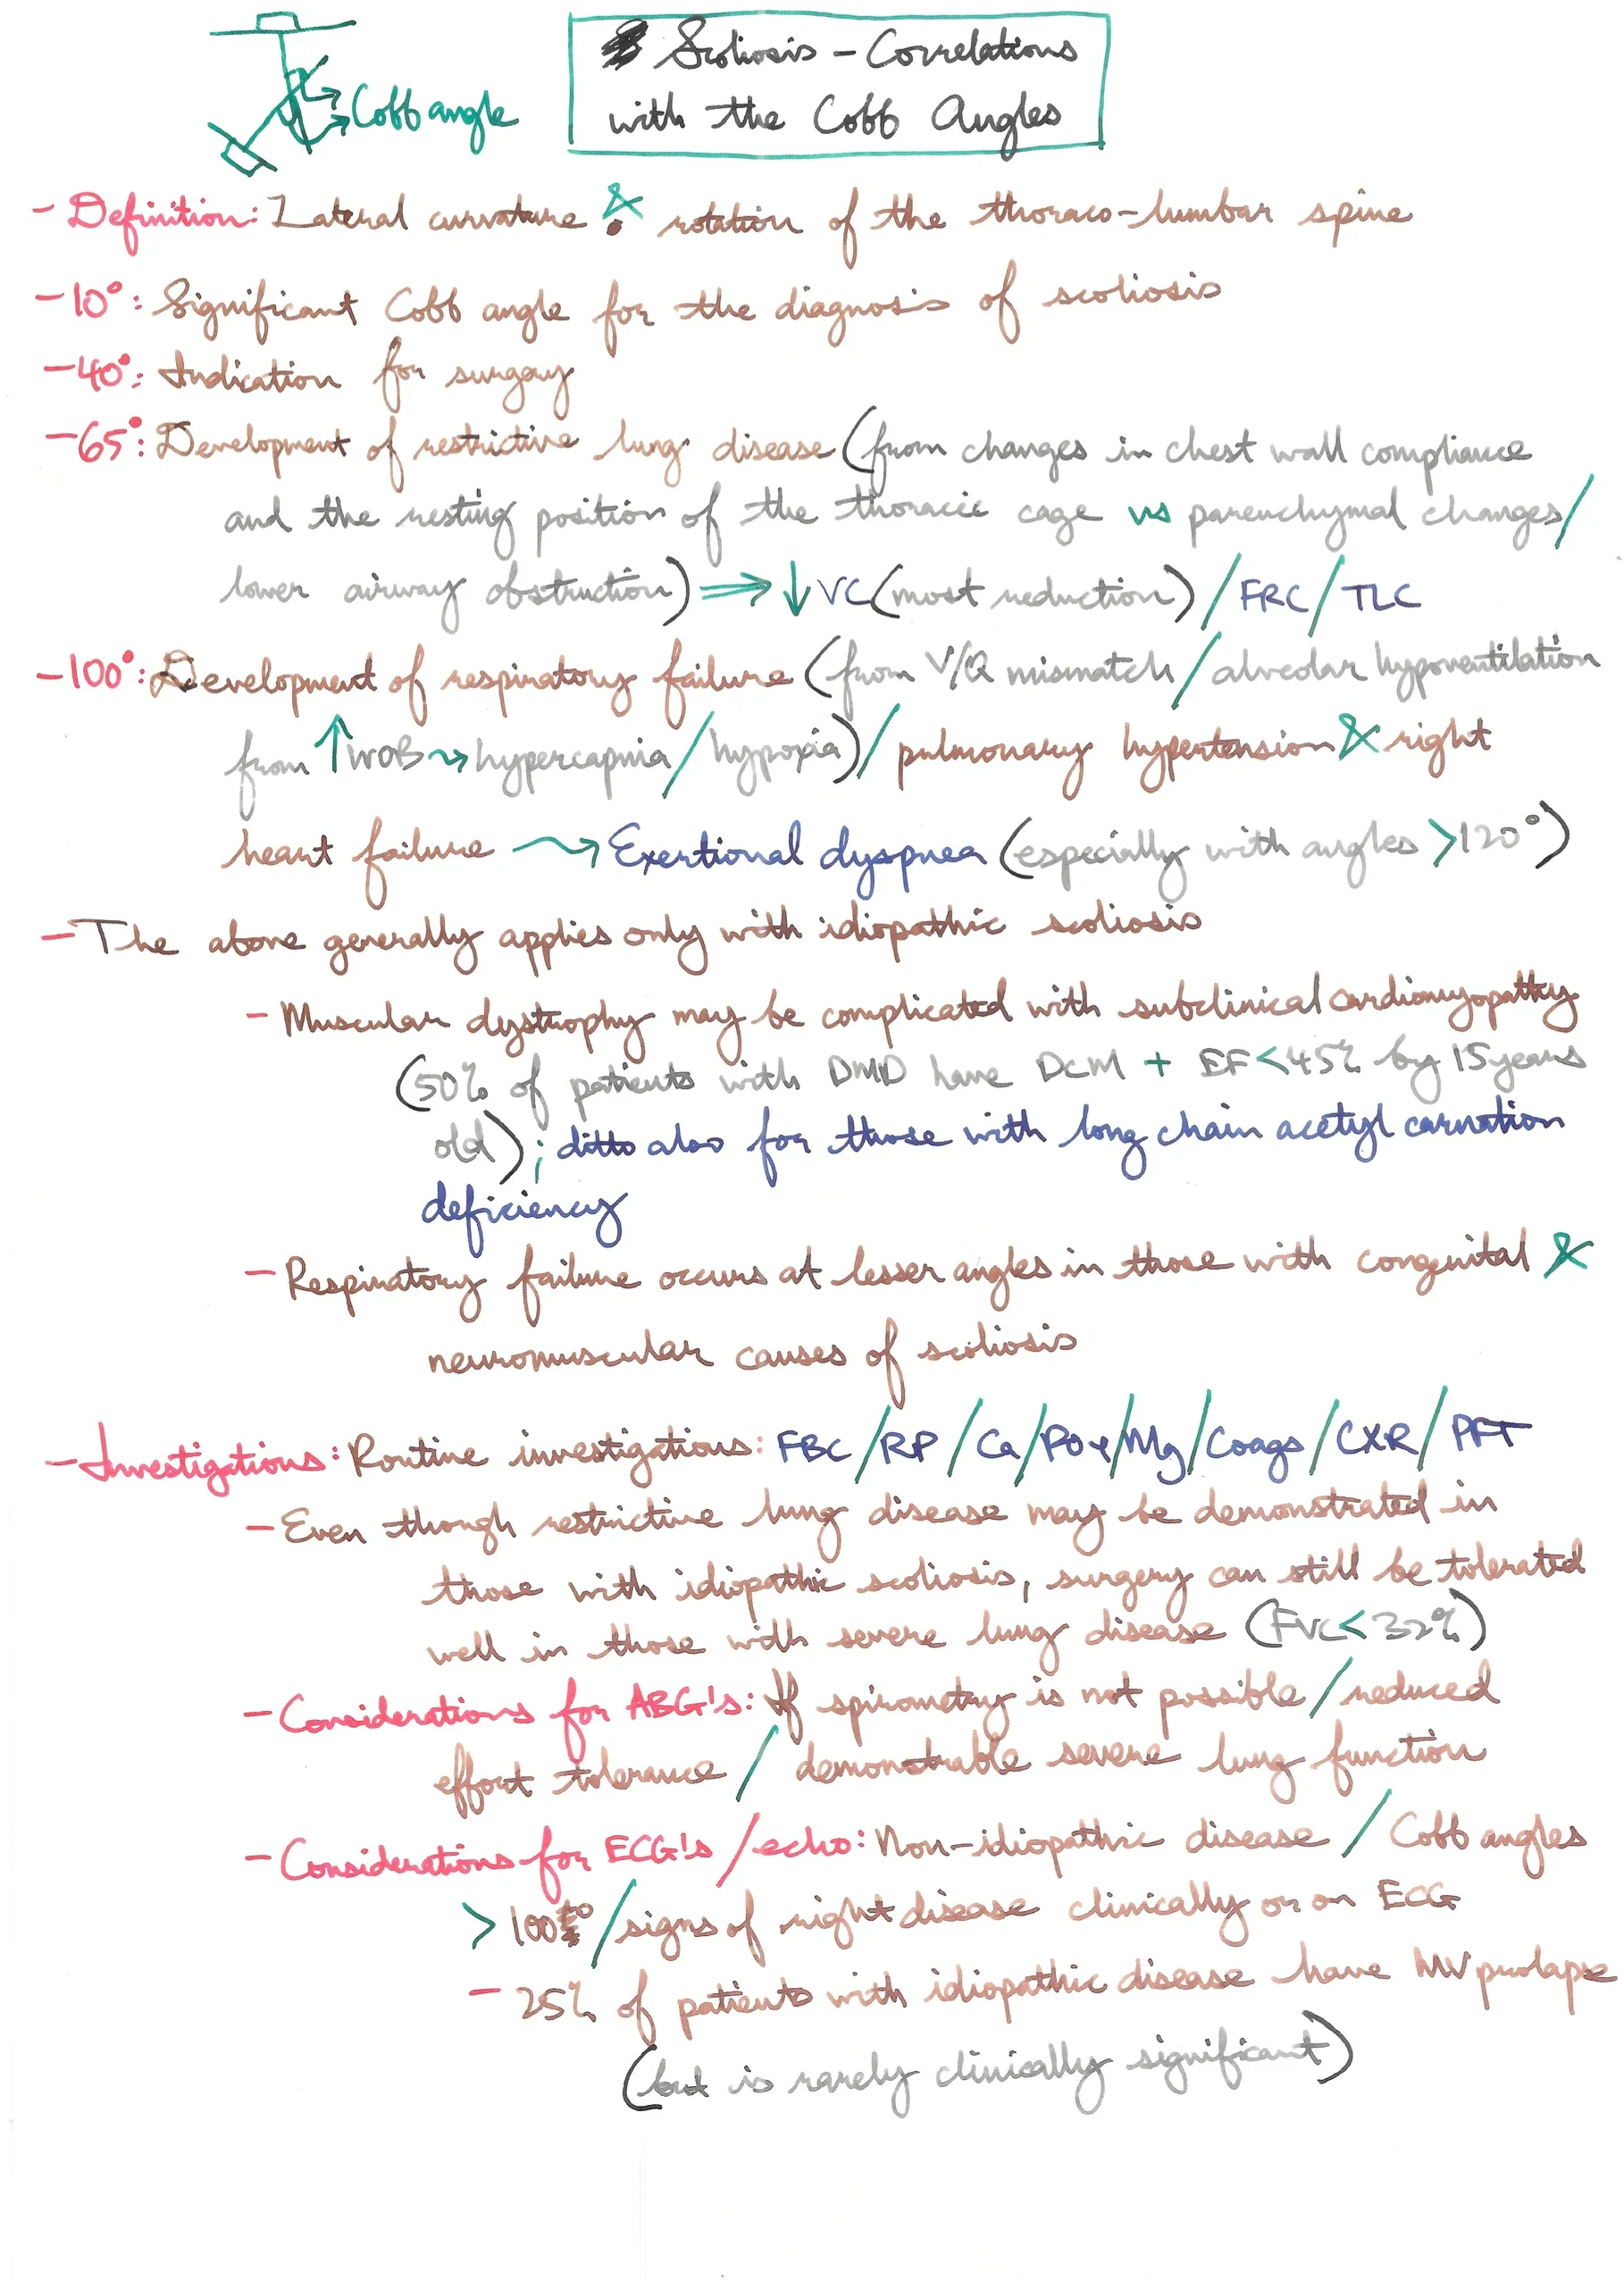 Cobb angle
Scoliosis – Correlations
with the Cobb Angles
- Definition: Lateral curvature & rotation of the thoraco-lumbar spine
- 10°: Significant Cobb angle for the diagnosis of scoliosis
- 40°: Indication for surgery
- 65°: Development of restrictive lung disease (from changes in chest wall compliance
and the resting position of the thoracic cage vs parenchymal changes/
lower airway obstruction) ⇒ ↓ VC (most reduction) / FRC / TLC
- 100°: Development of respiratory failure (from V/Q mismatch / alveolar hypoventilation
from ↑ WOB → hypercapnia / hypoxia) / pulmonary hypertension & right
heart failure → Exertional dyspnea (especially with angles >120°)
- The above generally applies only with idiopathic scoliosis
- Muscular dystrophy may be complicated with subclinical cardiomyopathy
(50% of patients with DMD have DCM + EF < 45% by 15 years
old) ; ditto also for those with long chain acetyl carnation
deficiency
- Respiratory failure occurs at lesser angles in those with congenital &
neuromuscular causes of scoliosis
- Investigations: Routine investigations: FBC / RP / Ca / PO4 / Mg / Coags / CXR / PFT
- Even though restrictive lung disease may be demonstrated in
those with idiopathic scoliosis, surgery can still be tolerated
well in those with severe lung disease (FVC < 32%)
- Considerations for ABG's: If spirometry is not possible / reduced
effort tolerance / demonstrable severe lung function
- Considerations for ECG's / echo: Non-idiopathic disease / Cobb angles
> 100° / signs of right disease clinically or on ECG
- 25% of patients with idiopathic disease have MV prolapse
(but is rarely clinically significant)